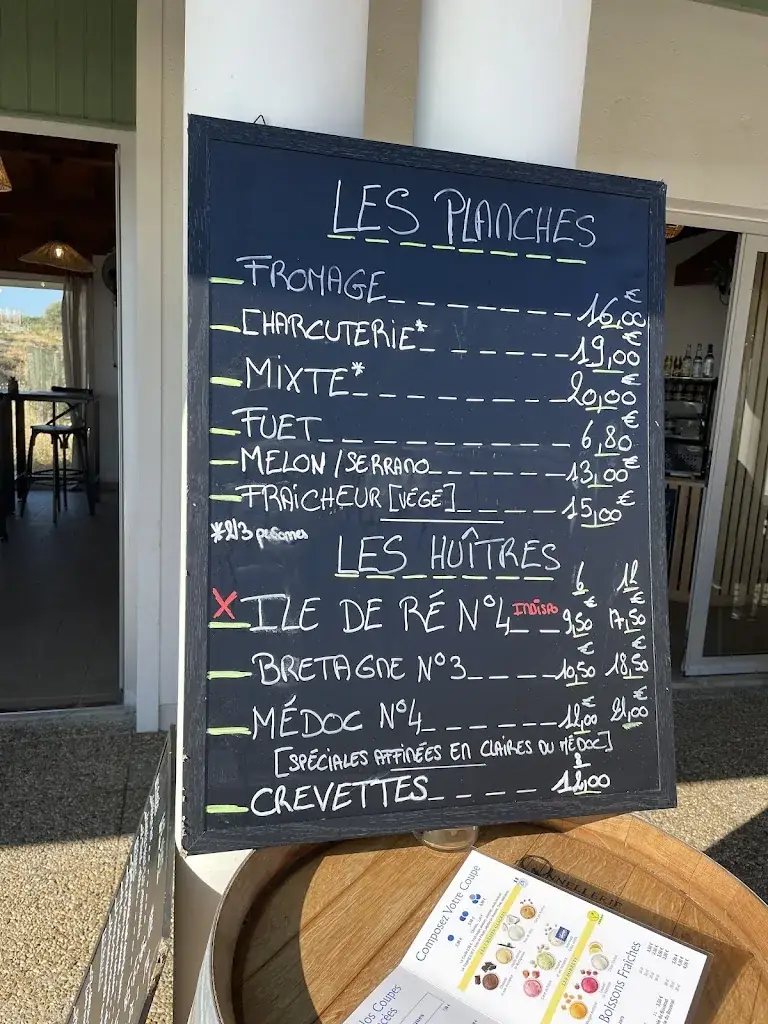 LES PLANCHES
FROMAGE_ _ _ _ _ _ 16,00€
CHARCUTERIE*_ _ _ _ _ 19,00€
MIXTE*_ _ _ _ _ _ 20,00€
FUET_ _ _ _ _ _ _ 6,80€
MELON/SERRANO_ _ _ _ _ 13,00€
FRAÎCHEUR [VÉGÉ]_ _ _ _ 15,00€
*2/3 personnes
LES HUÎTRES
6 12
X ILE DE RÉ N°4 INDISPO _ _ 9,50€ 17,50€
BRETAGNE N°3_ _ _ _ 10,50€ 18,50€
MÉDOC N°4_ _ _ _ _ 12,00€ 21,00€
[SPÉCIALES AFFINÉES EN CLAIRES DU MÉDOC]
CREVETTES_ _ _ _ _ 12,00
Composez Votre Coupe
Boissons Fraîches